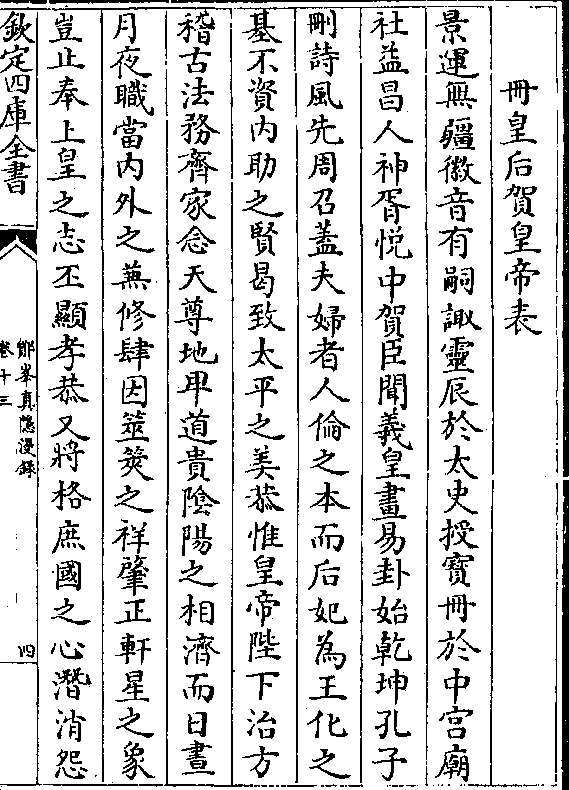 冊皇后賀皇帝表
景運無疆徽音有嗣諏靈辰於太史授寳冊於中宫廟
社益昌人神胥悦中賀臣聞羲皇畫易卦始乾坤孔子
刪詩風先周召蓋夫婦者人倫之本而后妃為王化之
基不資内助之賢曷致太平之美恭惟皇帝陛下治方
稽古法務齊家念天尊地卑道貴陰陽之相濟而日晝
月夜職當内外之兼修肆因筮筴之祥肇正軒星之象
豈止奉上皇之志丕顯孝恭又將格庶國之心潛消怨
欽定四庫全書
鄮峯真隠漫録
卷十三
四